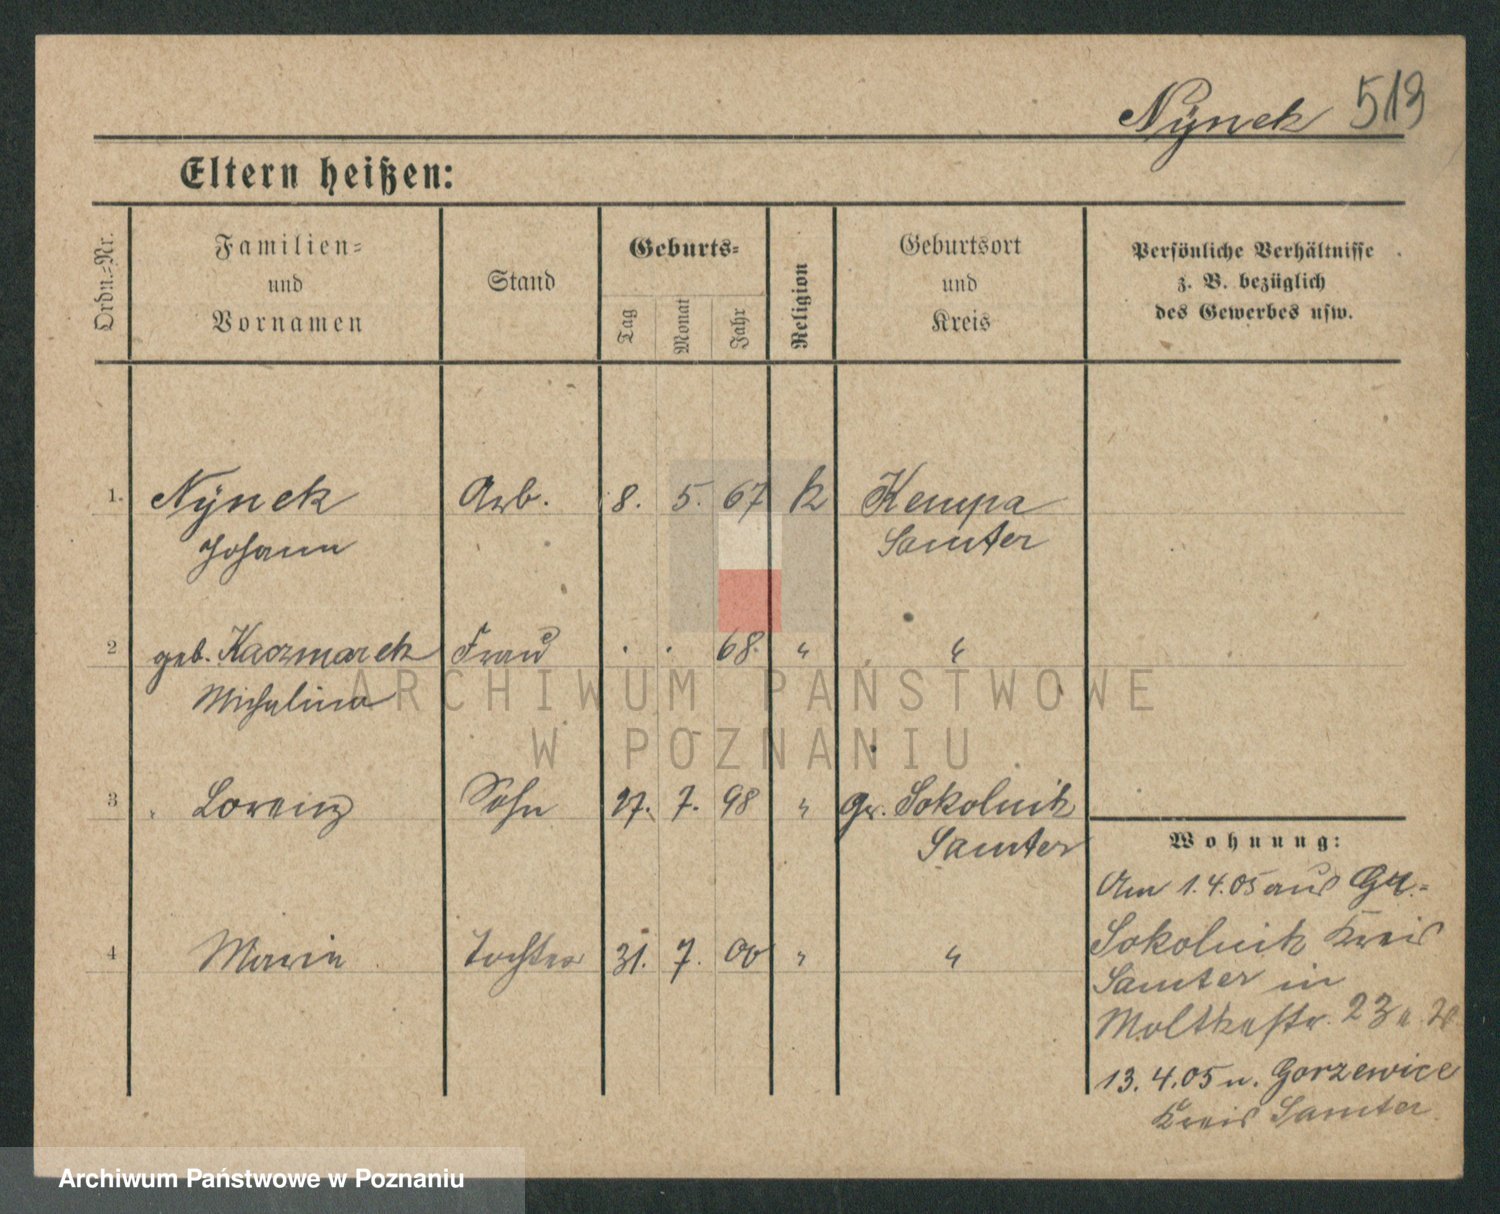 Nÿnek 513
Eltern heißen:
Ordn.-Nr.
Familien-
und
Vornamen
Stand
Geburts-
Tag Monat Jahr
Religion
Geburtsort
und
Kreis
Persönliche Verhältnisse
z. B. bezüglich
des Gewerbes usw.
1. Nÿnek Arb. 8. 5. 67 K Kempa
Johann Samter
2 geb. Kaczmarek Frau . . 68. " "
Michalina
3 Lorenz Sohn 27. 7. 98 " Gr. Sokolnik
Samter
4 Marie Tochter 31. 7. 00 " "
Wohnung:
Am 1.4.05 aus Gr.-
Sokolnik Kreis
Samter in
Moltkestr. 23
13.4.05 n. Gorzewice
Kreis Samter
ARCHIWUM PAŃSTWOWE
W POZNANIU
Archiwum Państwowe w Poznaniu